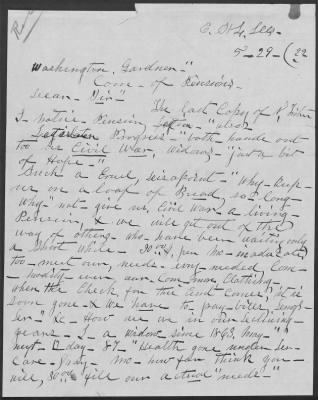 E. St L, Ills
5-29-(22
Washington, Gardner-"
Com - of Pensions
Dear - Sir-"
The last Copy of
I notice Pension also
Progress" both hands out
too us Civil War, widows "just a bit
of Hope-"
Such a Cruel disapoint-" Why- keep
us on a loaf of Bread, so- long
Why- not- give us, Civil War- a living-
Pension, & we will get out of the
way of others- who- have been waiting only
a Short While- 30.00, per mo-
too- meet our, needs- any- needed Com-
modity- even- our- Common, Clothing-
When the Check for the and Comes, it is
Soon gone- & we have to- pay- bills
&c- How are we in our declining-
years- I- a widow since 1863, May-"
next B day- 87- "Health gone under
Care- pray- mo- how far think you-
will, 30.00 fill our actual "needs"